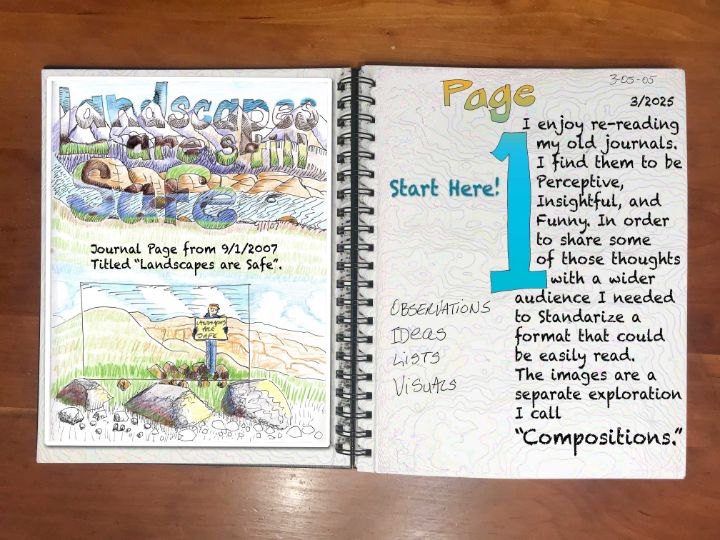 Landscapes
are still
Safe
9/1/07
Journal Page from 9/1/2007
Titled "Landscapes are Safe".
LANDSCAPES
ARE
SAFE
Page
1
3-05-05
3/2025
Start Here!
I enjoy re-reading
my old journals.
I find them to be
Perceptive,
Insightful, and
Funny. In order
to share some
of those thoughts
with a wider
audience I needed
to Standarize a
format that could
be easily read.
The images are a
separate exploration
I call
"Compositions."
OBSERVATIONS
IDeas
LISTS
VISUALS